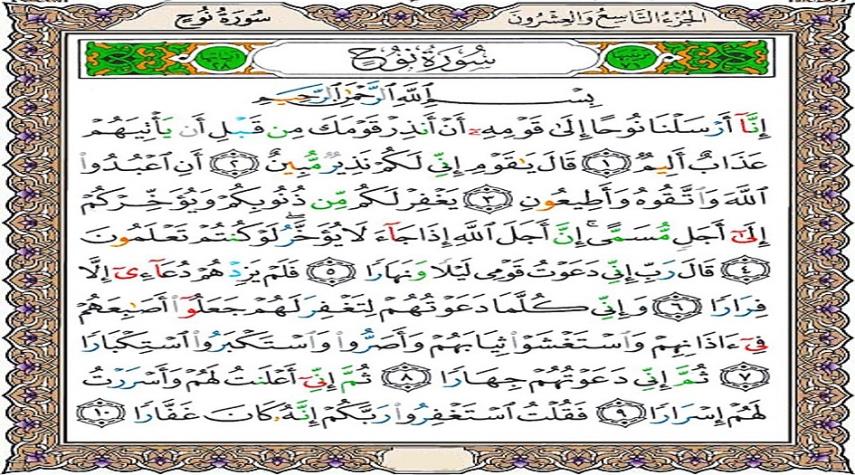 الجُزءُ التَّاسِعُ وَالعِشْرُونَ سُورَةُ نُوحٍ
سُورَةُ نُوحٍ
بِسْمِ ٱللَّهِ ٱلرَّحْمَٰنِ ٱلرَّحِيمِ
إِنَّآ أَرْسَلْنَا نُوحًا إِلَىٰ قَوْمِهِۦٓ أَنْ أَنذِرْ قَوْمَكَ مِن قَبْلِ أَن يَأْتِيَهُمْ
عَذَابٌ أَلِيمٌ ١ قَالَ يَٰقَوْمِ إِنِّى لَكُمْ نَذِيرٌ مُّبِينٌ ٢ أَنِ ٱعْبُدُوا۟
ٱللَّهَ وَٱتَّقُوهُ وَأَطِيعُونِ ٣ يَغْفِرْ لَكُم مِّن ذُنُوبِكُمْ وَيُؤَخِّرْكُمْ
إِلَىٰٓ أَجَلٍ مُّسَمًّى ۚ إِنَّ أَجَلَ ٱللَّهِ إِذَا جَآءَ لَا يُؤَخَّرُ ۖ لَوْ كُنتُمْ تَعْلَمُونَ
٤ قَالَ رَبِّ إِنِّى دَعَوْتُ قَوْمِى لَيْلًا وَنَهَارًا ٥ فَلَمْ يَزِدْهُمْ دُعَآءِىٓ إِلَّا
فِرَارًا ٦ وَإِنِّى كُلَّمَا دَعَوْتُهُمْ لِتَغْفِرَ لَهُمْ جَعَلُوٓا۟ أَصَٰبِعَهُمْ
فِىٓ ءَاذَانِهِمْ وَٱسْتَغْشَوْا۟ ثِيَابَهُمْ وَأَصَرُّوا۟ وَٱسْتَكْبَرُوا۟ ٱسْتِكْبَارًا
٧ ثُمَّ إِنِّى دَعَوْتُهُمْ جِهَارًا ٨ ثُمَّ إِنِّىٓ أَعْلَنتُ لَهُمْ وَأَسْرَرْتُ
لَهُمْ إِسْرَارًا ٩ فَقُلْتُ ٱسْتَغْفِرُوا۟ رَبَّكُمْ إِنَّهُۥ كَانَ غَفَّارًا ١٠